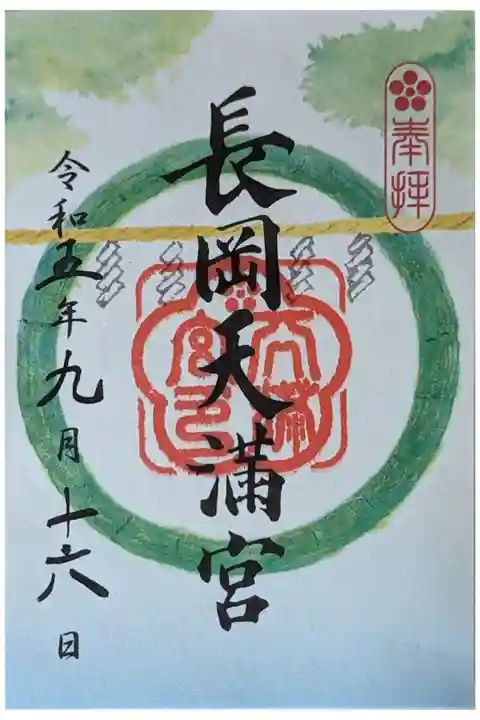 奉拝
長岡天満宮
令和五年九月十六日